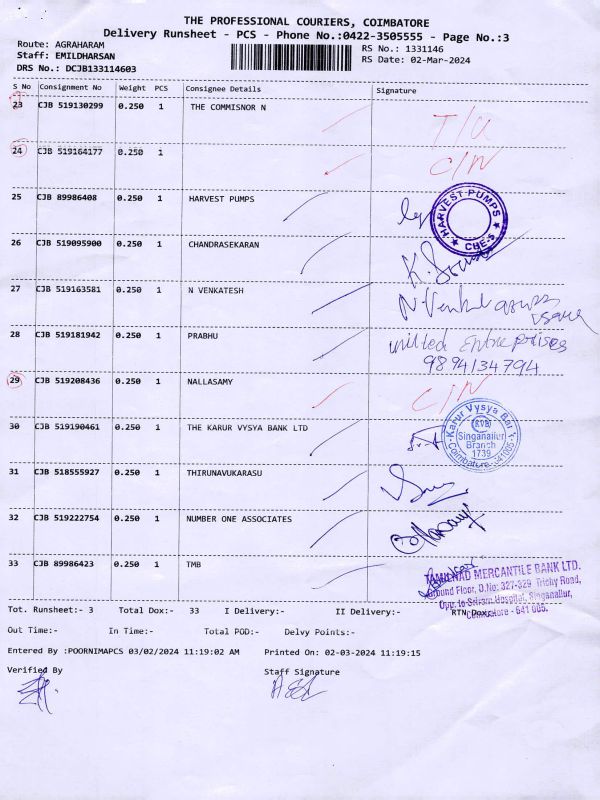 THE PROFESSIONAL COURIERS, COIMBATORE
Delivery Runsheet - PCS - Phone No.:0422-3505555 - Page No.:3
Route: AGRAHARAM
Staff: EMILDHARSAN
DRS No.: DCJB133114603
RS No.: 1331146
RS Date: 02-Mar-2024
S No Consignment No Weight PCS Consignee Details Signature
23 CJB 519130299 0.250 1 THE COMMISNOR N
24 CJB 519164177 0.250 1 C/N
25 CJB 89986408 0.250 1 HARVEST PUMPS
HARVEST PUMPS ★ CBE-5 ★
26 CJB 519095900 0.250 1 CHANDRASEKARAN
27 CJB 519163581 0.250 1 N VENKATESH
28 CJB 519181942 0.250 1 PRABHU united Enterprises
9894134794
29 CJB 519208436 0.250 1 NALLASAMY C/N
30 CJB 519190461 0.250 1 THE KARUR VYSYA BANK LTD
Karur Vysya
KVB
Singanallur
Branch
1739
31 CJB 518555927 0.250 1 THIRUNAVUKARASU
32 CJB 519222754 0.250 1 NUMBER ONE ASSOCIATES
33 CJB 89986423 0.250 1 TMB
TAMILNAD MERCANTILE BANK LTD.
Ground Floor, D.No: 327-329 Trichy Road,
Opp. to Sriram Hospital, Singanallur,
Coimbatore - 641 005.
Tot. Runsheet:- 3 Total Dox:- 33 I Delivery:- II Delivery:- RTN Dox:-
Out Time:- In Time:- Total POD:- Delvy Points:-
Entered By :POORNIMAPCS 03/02/2024 11:19:02 AM Printed On: 02-03-2024 11:19:15
Verified By Staff Signature